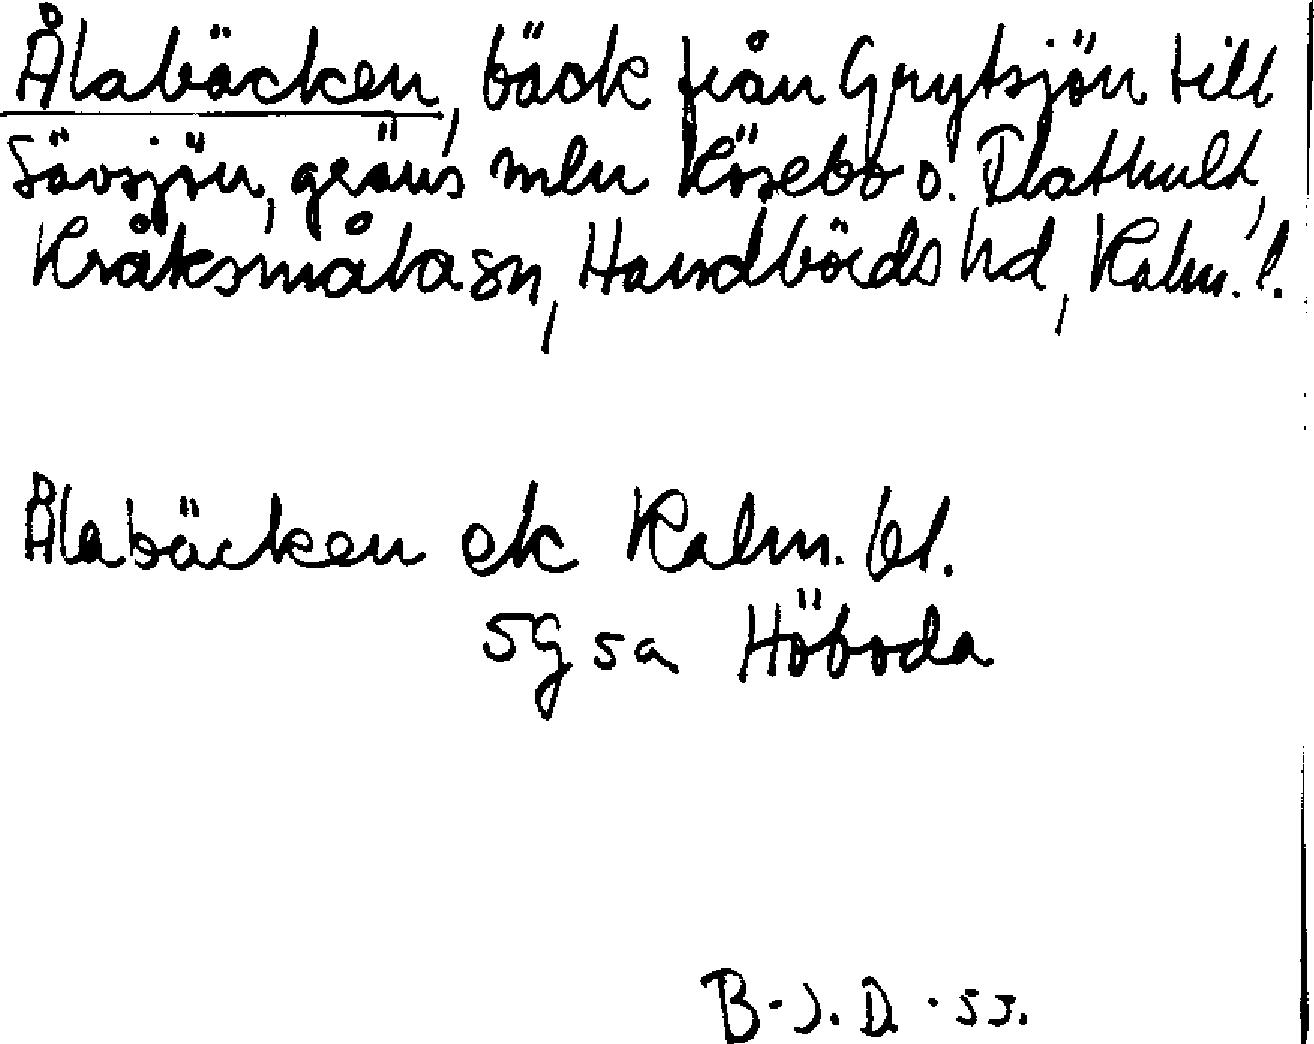 Ålabäcken, bäck från Grytsjön till
Sävsjön, gräns mln Kösebo o. Flathult,
Kråksmåla sn, Handbörds hd, Kalm. l.
Ålabäcken ek Kalm. bl.
5g 5a Höboda
B-J.D. -53.